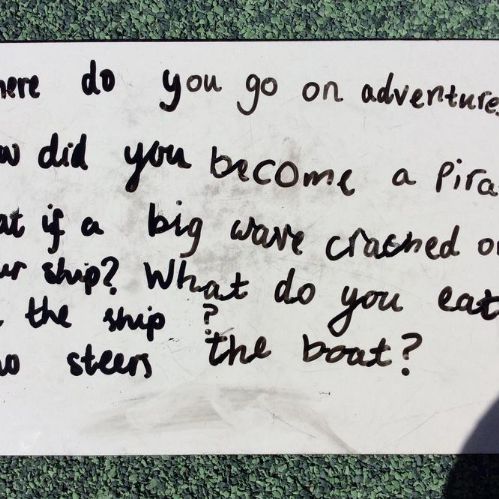 here do you go on adventures
w did you become a Pira
at if a big wave crashed on
ur ship? What do you eat
the ship ?
o steers the boat?